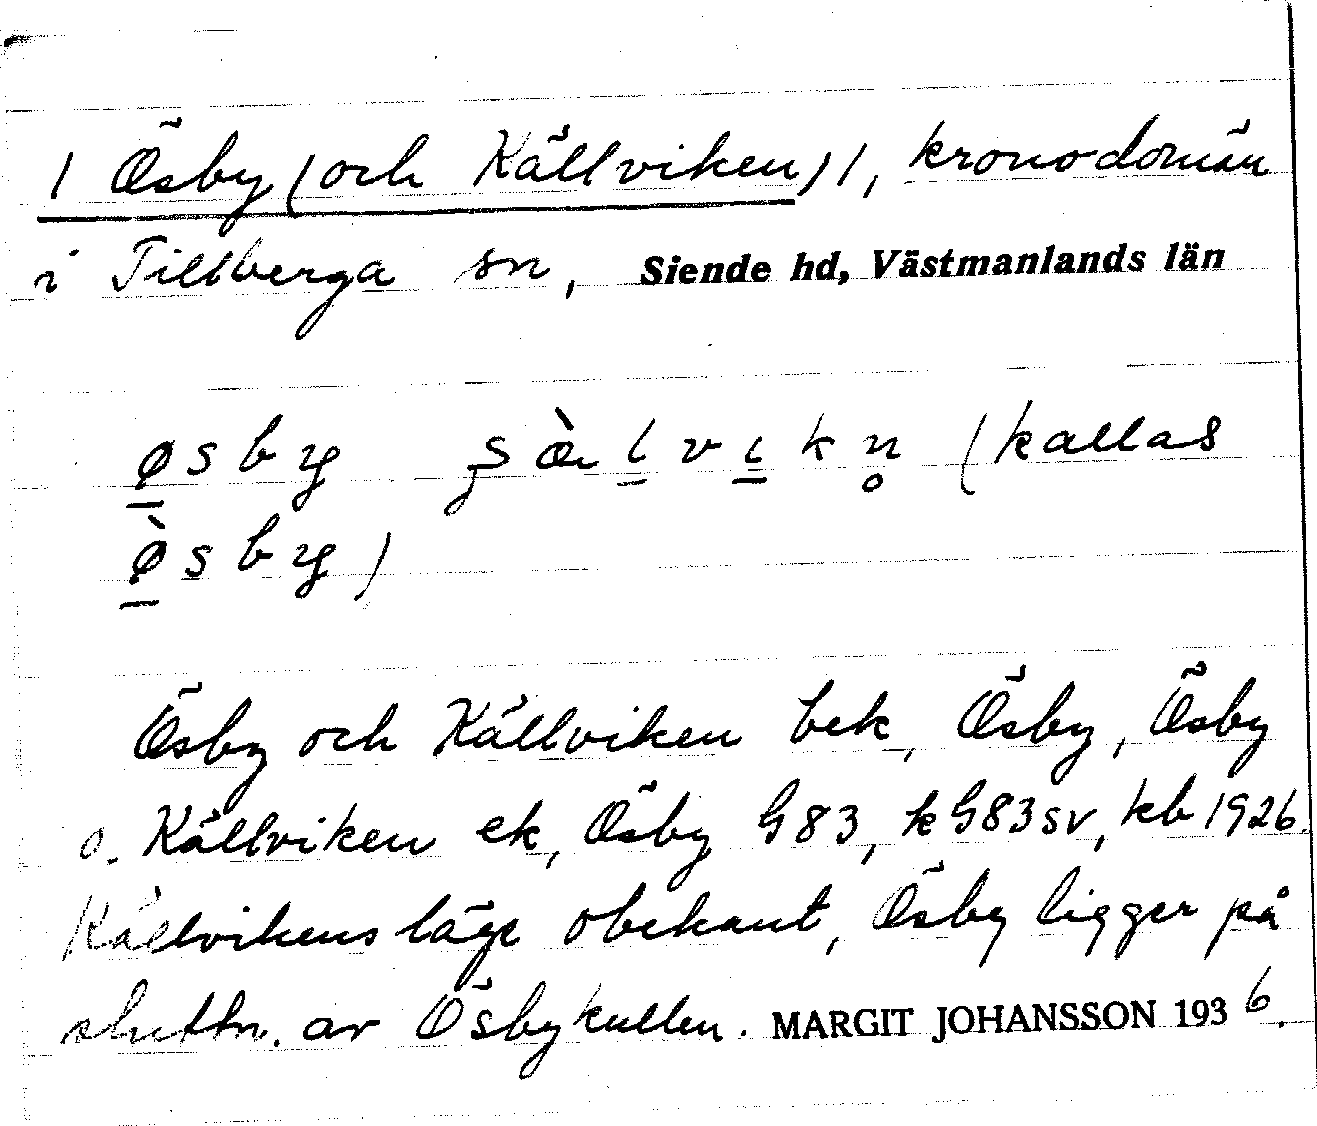 / Ösby (och Källviken) /, kronodomän
i Tillberga sn, Siende hd, Västmanlands län
ø̲sby ʂæ̀l̲vɩ̲kn̥ (kallas
ø̲̀sby)
Ösby och Källviken bek, Ösby, Ösby
o. Källviken ek, Ösby G83, kG83sv, kb 1926.
Källvikens läge obekant, Ösby ligger på
sluttn. av Ösbykullen. MARGIT JOHANSSON 1936.